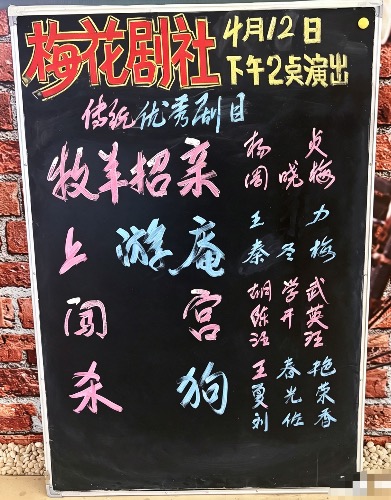 梅花剧社
4月12日
下午2点演出
传统优秀剧目
牧羊招亲
杨 贞
周晓梅
上游庵
王 力
秦冬梅
闯宫
胡学武
陈开英
杀狗
王春艳
夏光荣
刘佐香